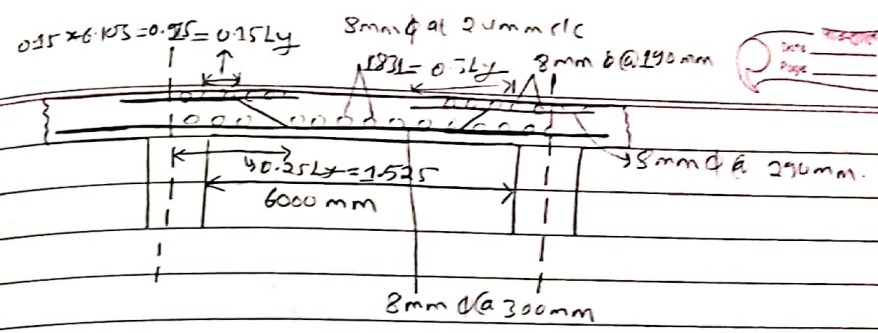 0.15×6.103=0.915=0.15Ly
8mm ϕ at 2 mm c/c
1831=0.3Ly
8mm ϕ @190mm
Date
Page
0.25Ly=1.525
8mm ϕ @ 290mm.
6000 mm
8mm ϕ @ 300mm